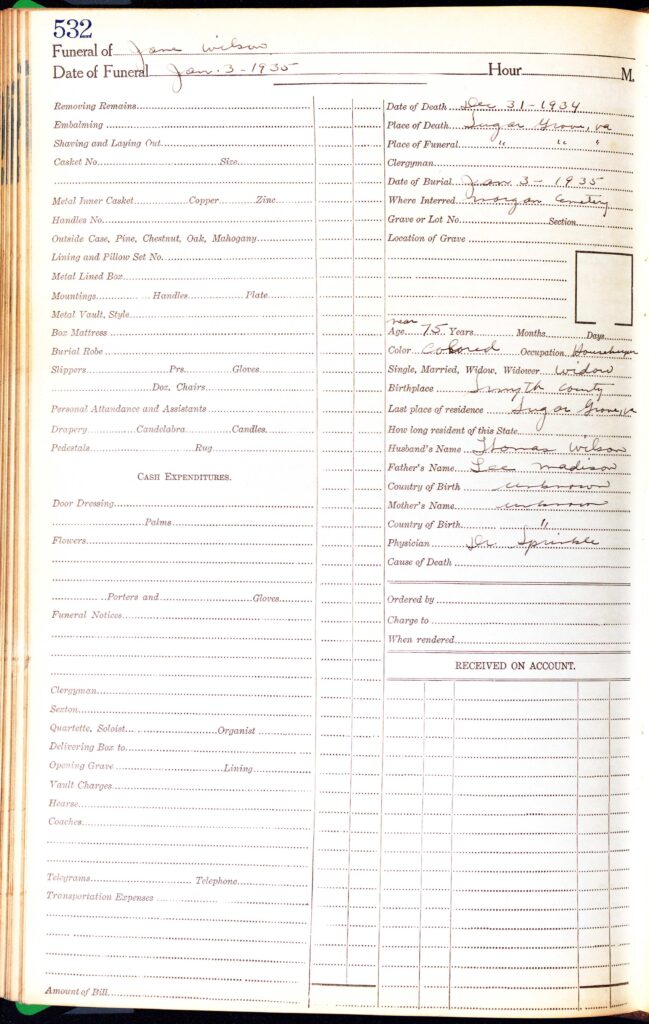 532
Funeral of Jane Wilson
Date of Funeral Jan. 3 - 1935 Hour M.
Removing Remains
Embalming
Shaving and Laying Out
Casket No. Size
Metal Inner Casket Copper Zinc
Handles No.
Outside Case, Pine, Chestnut, Oak, Mahogany
Lining and Pillow Set No.
Metal Lined Box
Mountings Handles Plate
Metal Vault, Style
Box Mattress
Burial Robe
Slippers Prs. Gloves
Doz. Chairs
Personal Attandance and Assistants
Drapery Candelabra Candles
Pedestals Rug
CASH EXPENDITURES.
Door Dressing
Palms
Flowers
Porters and Gloves
Funeral Notices
Clergyman
Sexton
Quartette, Soloist Organist
Delivering Box to
Opening Grave Lining
Vault Charges
Hearse
Coaches
Telegrams Telephone
Transportation Expenses
Amount of Bill
Date of Death Dec 31 - 1934
Place of Death Sugar Grove, Va
Place of Funeral " " "
Clergyman
Date of Burial Jan 3 - 1935
Where Interred Morgan Cemetery
Grave or Lot No. Section
Location of Grave
near
Age 75 Years Months Days
Color Colored Occupation Housekeeper
Single, Married, Widow, Widower Widow
Birthplace Smyth County
Last place of residence Sugar Grove, Va
How long resident of this State
Husband's Name Thomas Wilson
Father's Name Lee Madison
Country of Birth unknown
Mother's Name unknown
Country of Birth "
Physician Dr Sprinkle
Cause of Death
Ordered by
Charge to
When rendered
RECEIVED ON ACCOUNT.